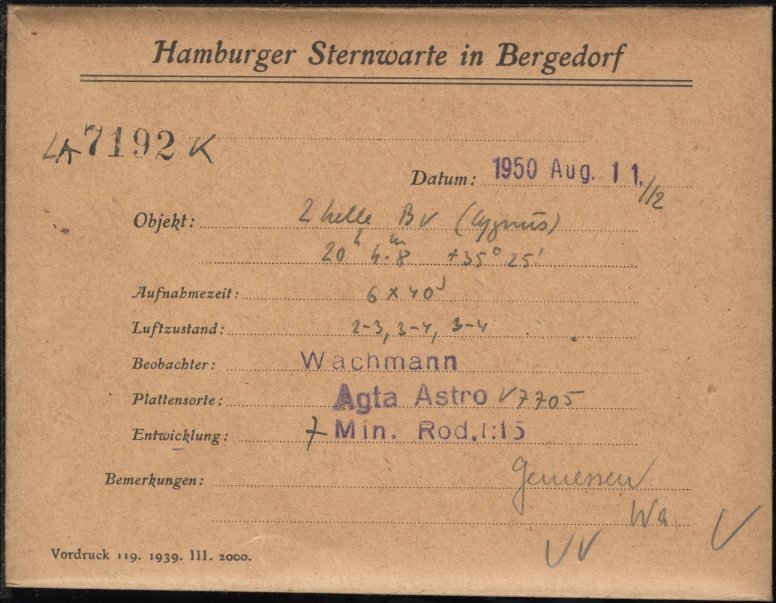 Hamburger Sternwarte in Bergedorf
LA 7192 K
Datum: 1950 Aug. 11./12
Objekt: 2 helle BV (Cygnus)
20h 4.m8 +35° 25'
Aufnahmezeit: 6 x 40s
Luftzustand: 2-3, 3-4, 3-4
Beobachter: Wachmann
Plattensorte: Agfa Astro V7705
Entwicklung: 7 Min. Rod. 1:15
Bemerkungen: Gemessen
Wa
VV V
Vordruck 119. 1939. III. 2000.